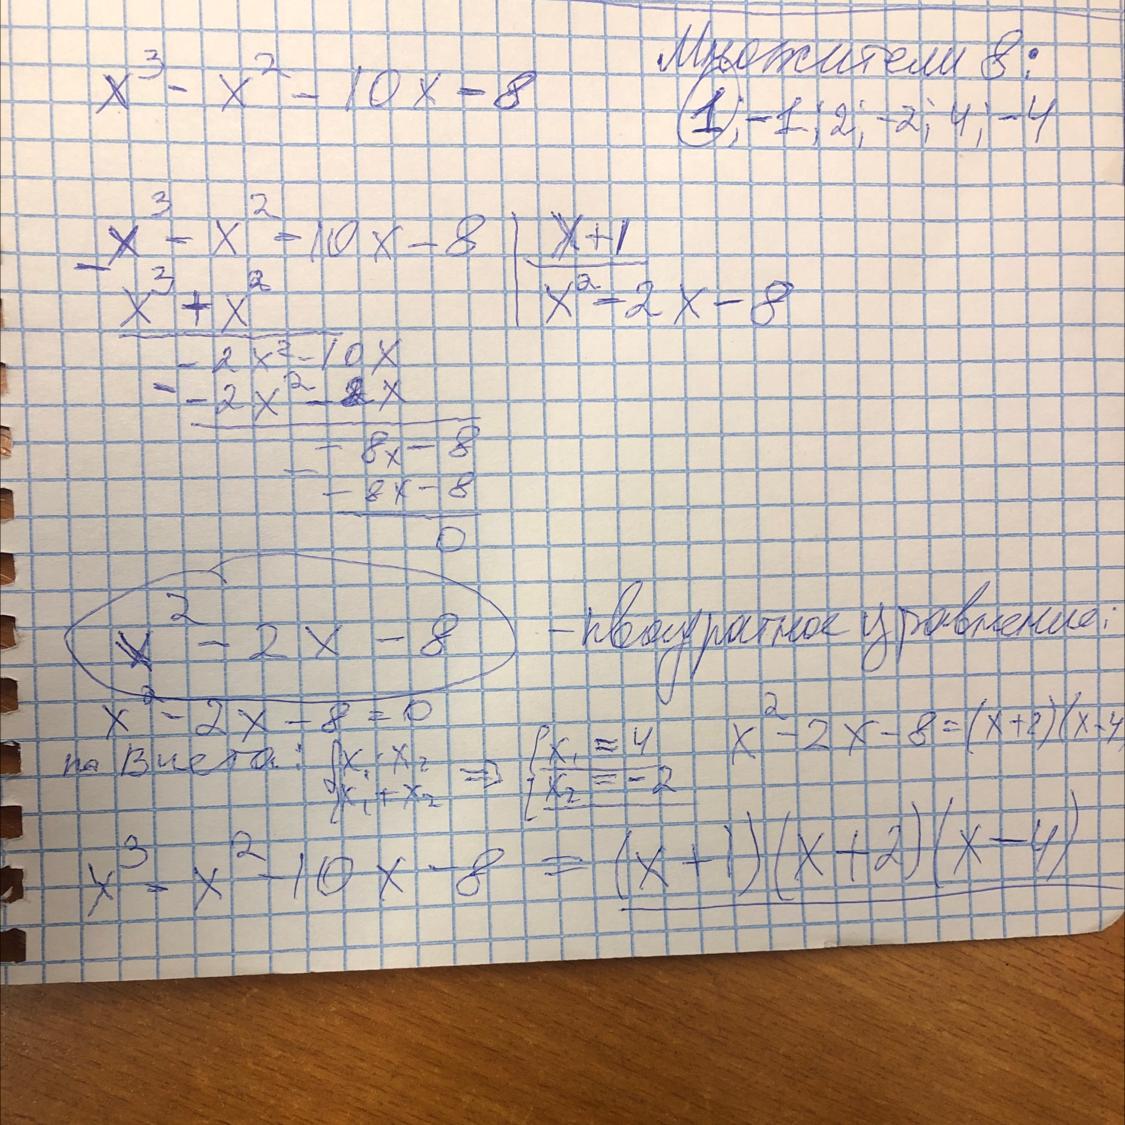 x³ - x² - 10x - 8
Множители 8:
1; -1; 2; -2; 4; -4
x³ - x² - 10x - 8 | x+1
x³ + x² | x² - 2x - 8
- 2x² - 10x
- 2x² - 2x
- 8x - 8
- 8x - 8
0
x² - 2x - 8 - квадратное уравнение:
x² - 2x - 8 = 0
по Виета: { x₁ · x₂ ⇒ { x₁ = 4 x² - 2x - 8 = (x+2)(x-4
x₁ + x₂ x₂ = -2
x³ - x² - 10x - 8 = (x+1)(x+2)(x-4)